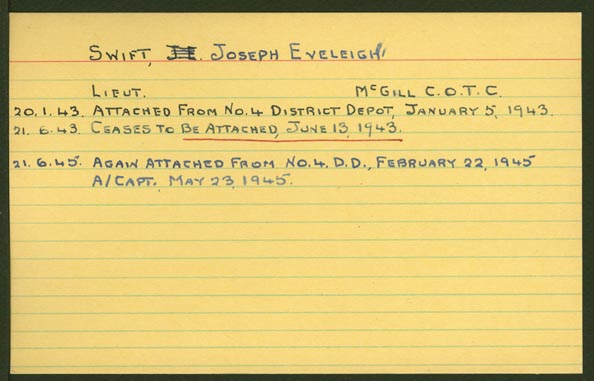 SWIFT, JOSEPH EVELEIGH
LIEUT. McGILL C.O.T.C.
20.1.43. ATTACHED FROM NO.4 DISTRICT DEPOT, JANUARY 5, 1943.
21.6.43. CEASES TO BE ATTACHED, JUNE 13, 1943.
21.6.45. AGAIN ATTACHED FROM NO.4. D.D., FEBRUARY 22, 1945
A/CAPT. MAY 23, 1945.